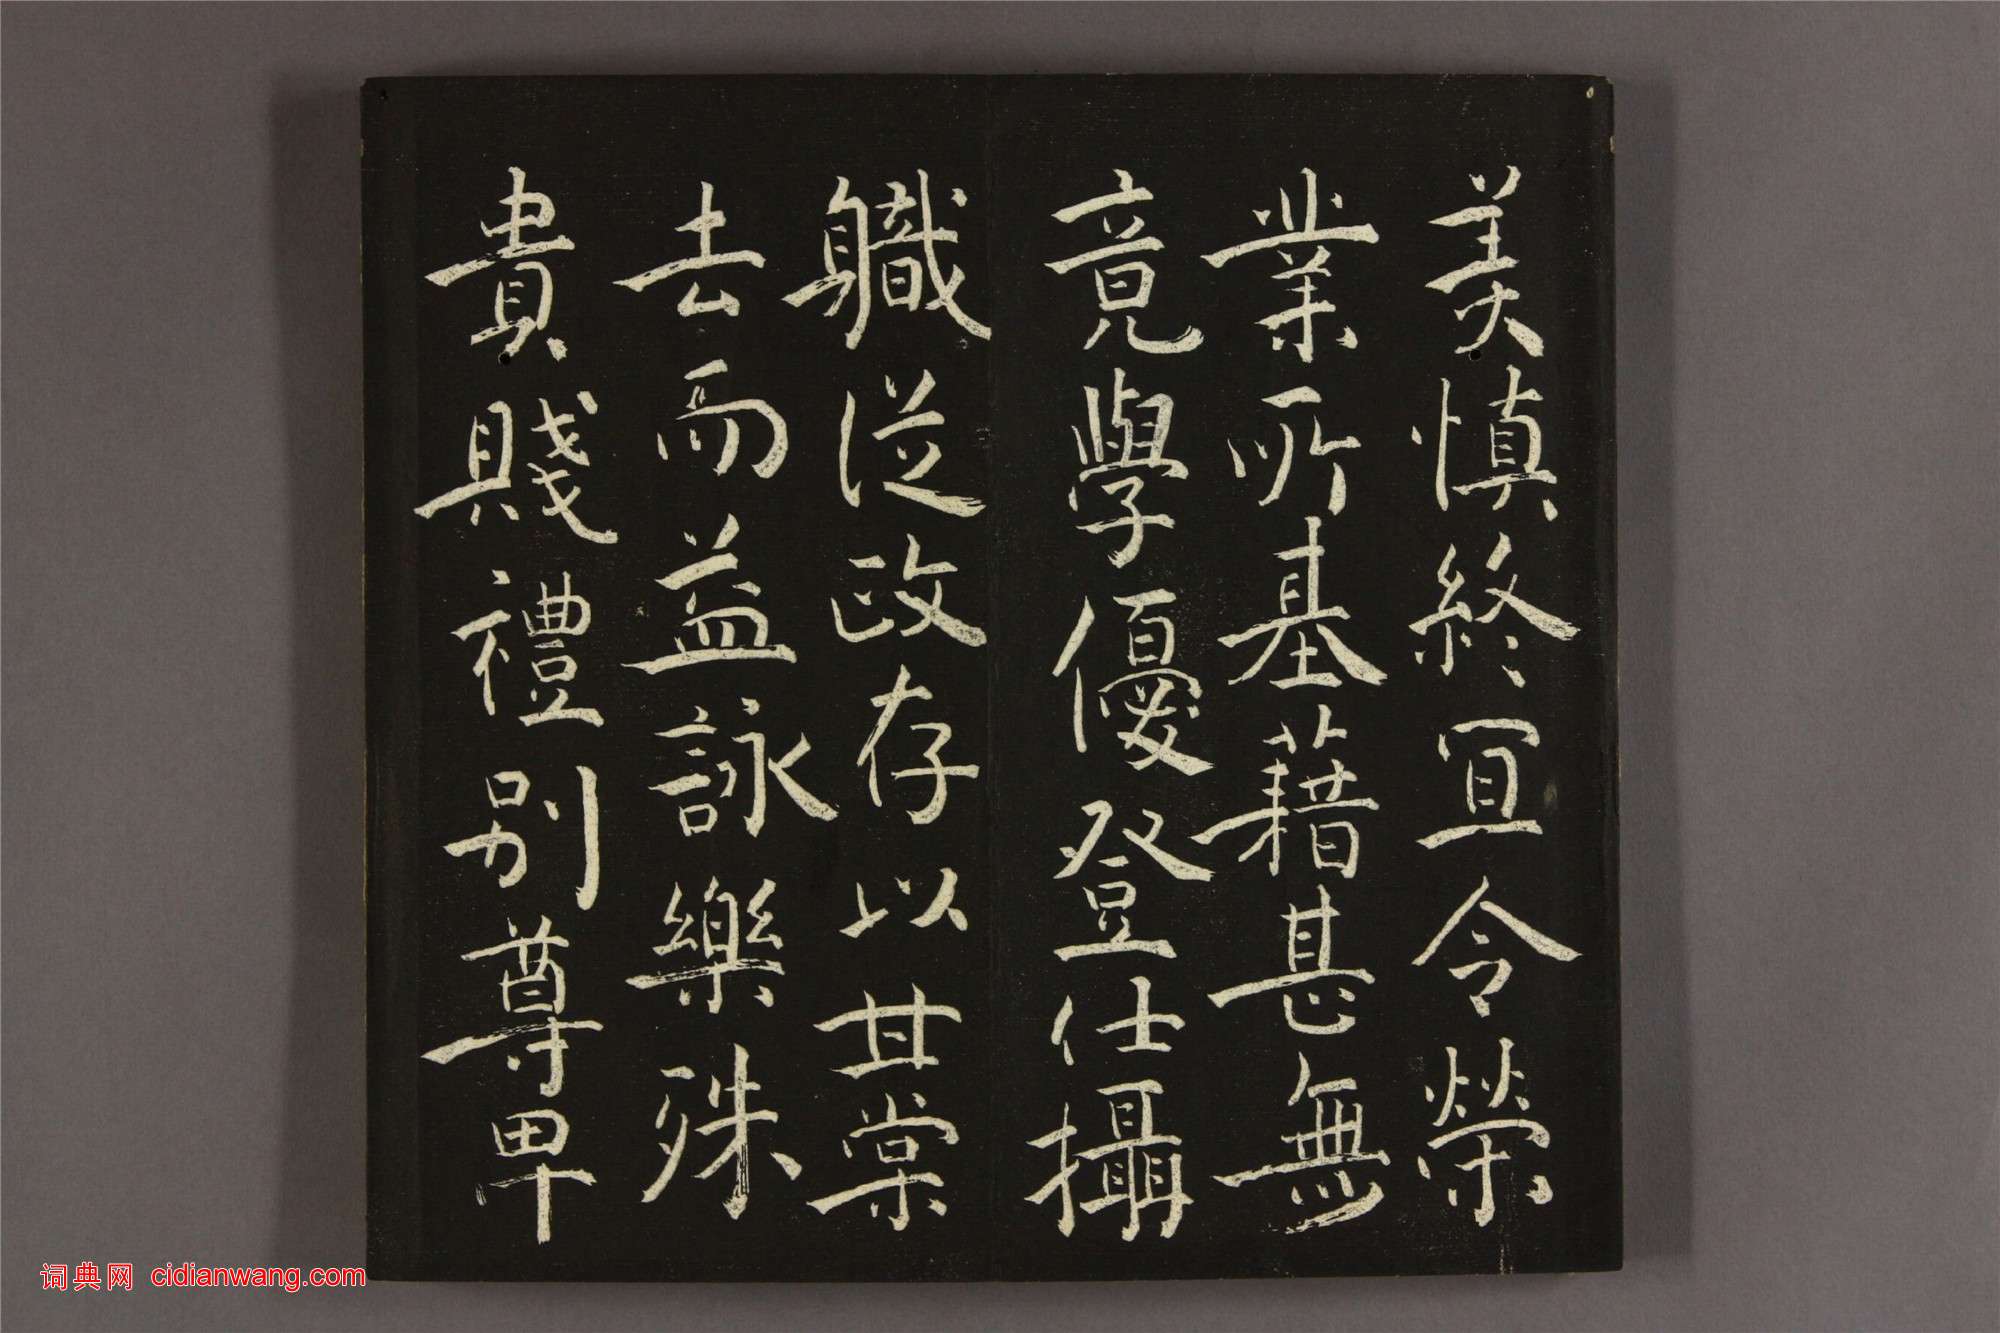 美慎終宜令榮
業所基藉甚無
竟學優登仕攝
職從政存以甘棠
去而益詠樂殊
貴賤禮別尊卑
词典网 cidianwang.com